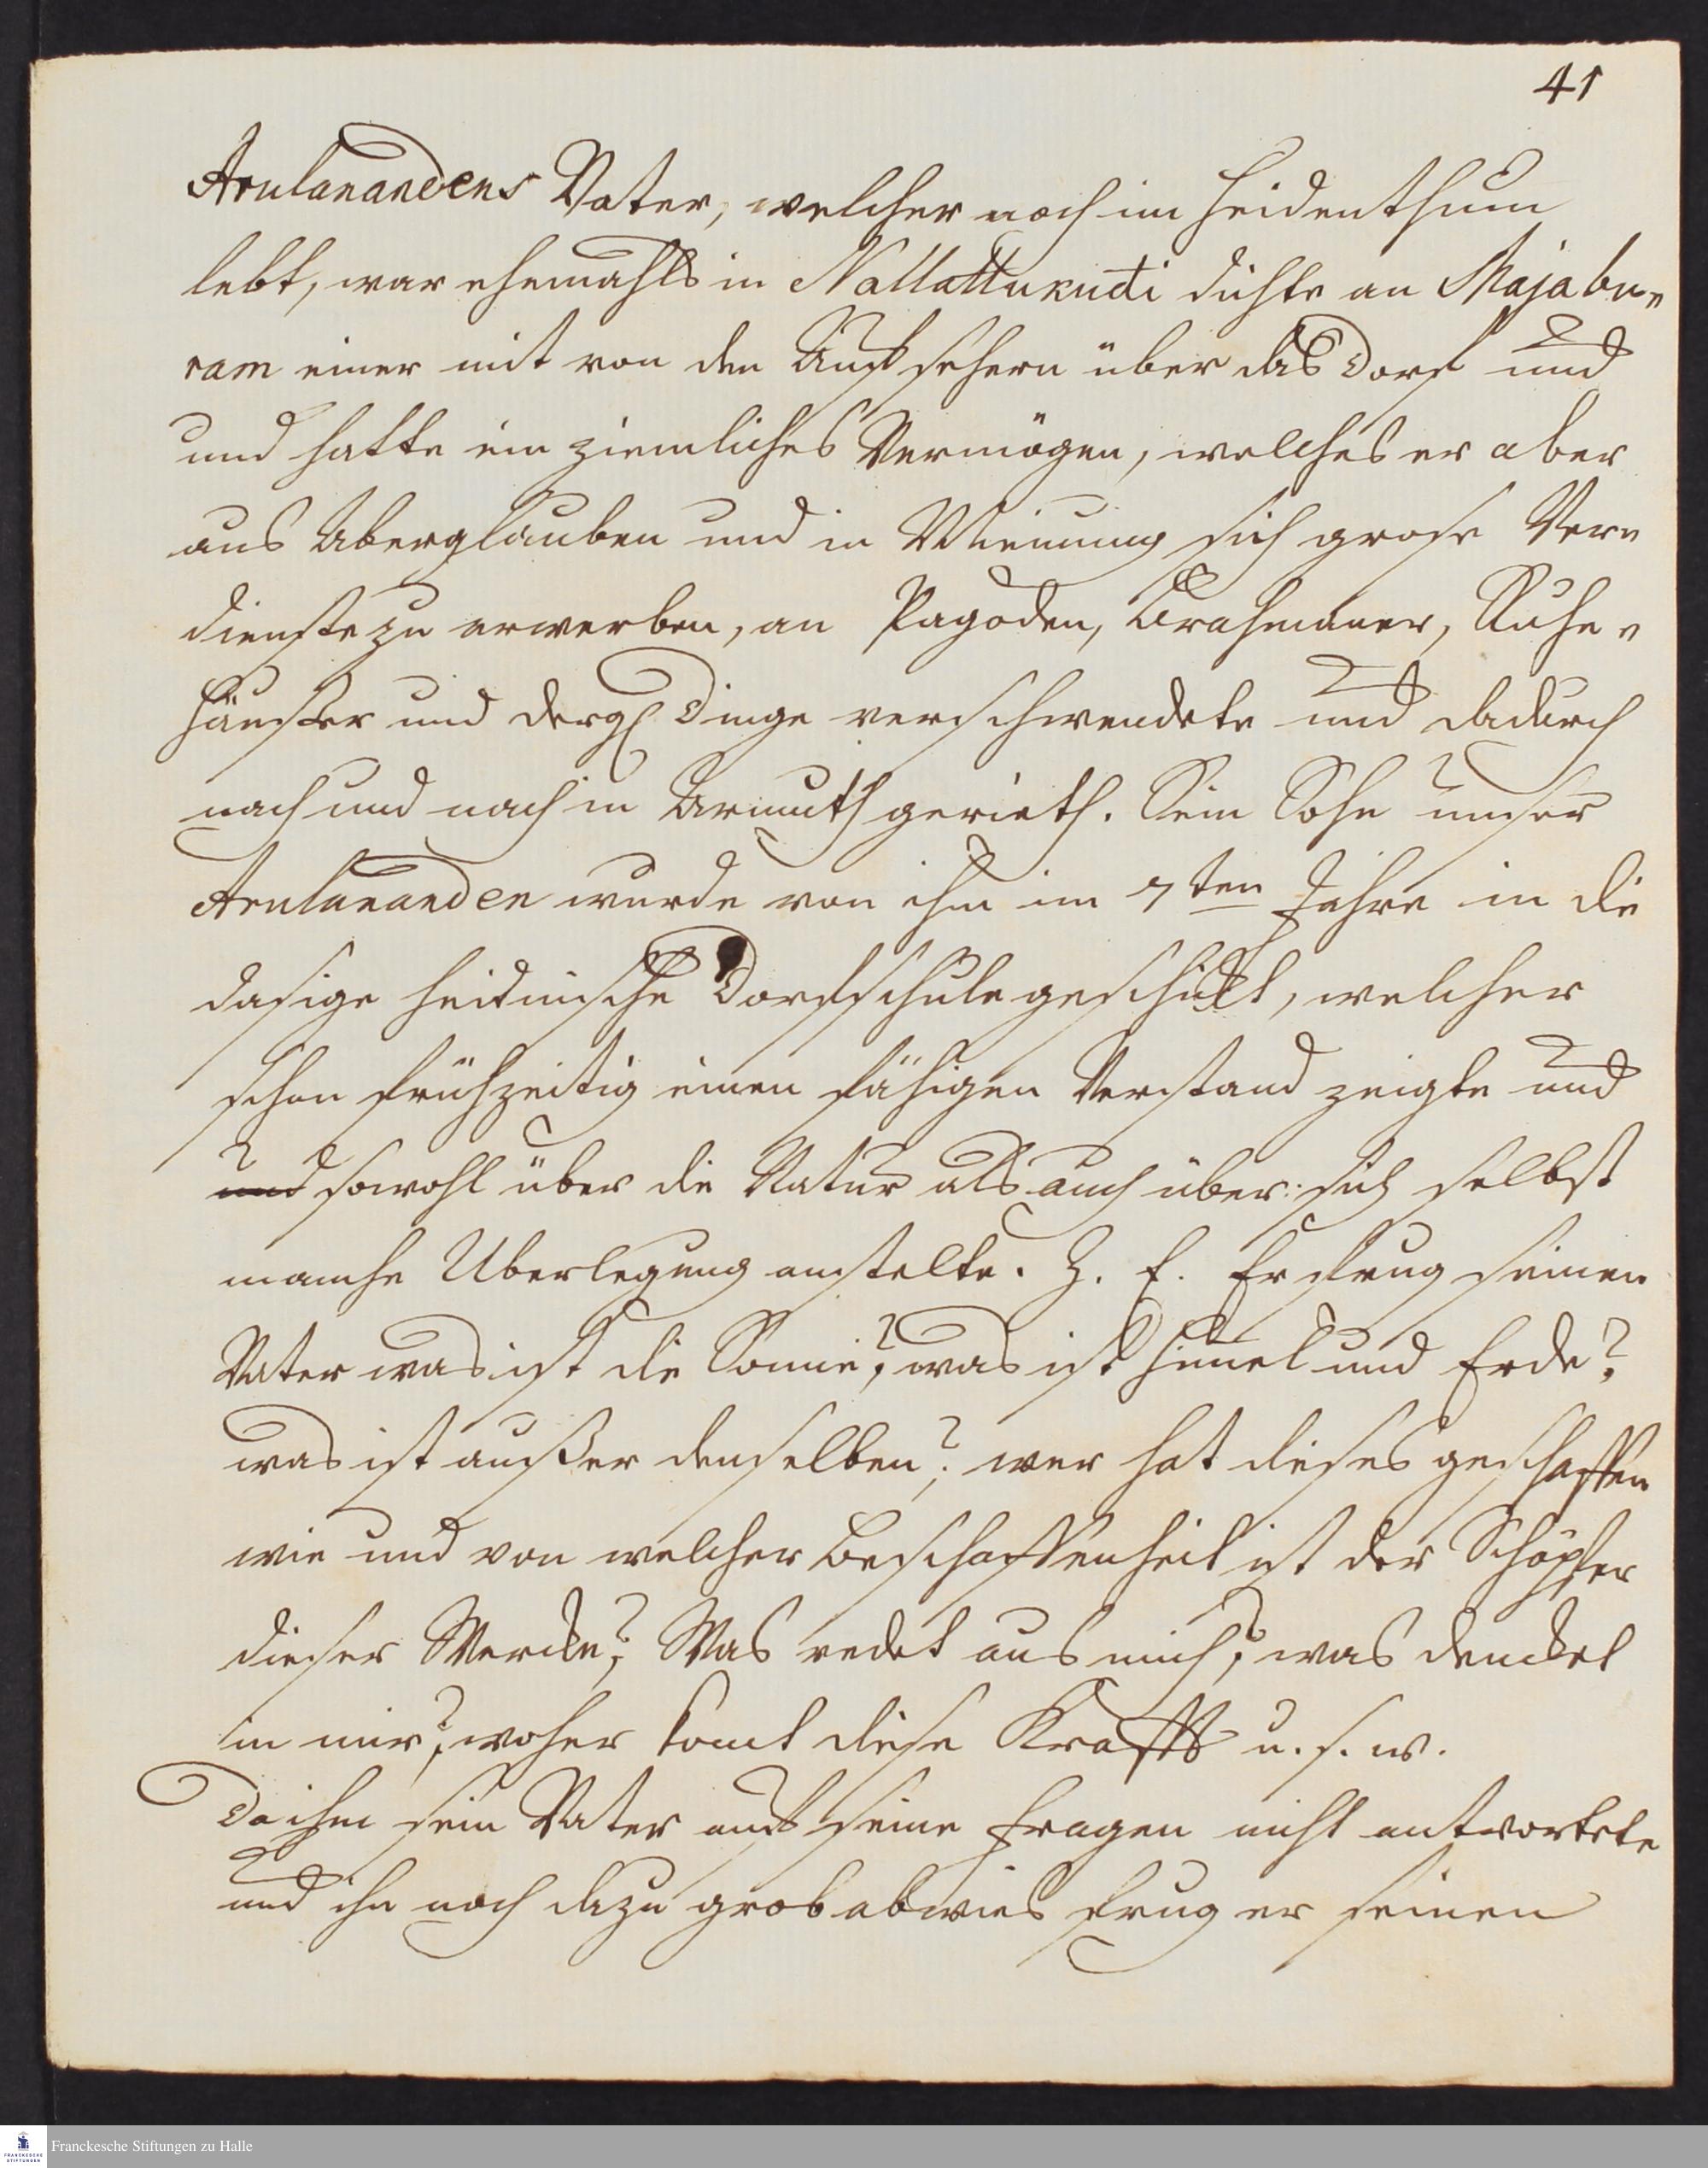 41
Arulanandens Vater, welcher noch im Heidenthum
lebt, war ehemahls in Nallattukudi dichte an Majabu„
ram einer mit von den Aufsehern über das Dorf und
und hatte ein ziemliches Vermögen, welches er aber
aus Aberglauben und in Meinung sich grose Ver„
dienste zu erwerben, an Pagoden, Brahmaner, Ruhe„
häußer und dergl Dinge verschwendete und dadurch
nach und nach in Armuth gerieth. Sein Sohn unser
Arulananden wurde von ihm im 7ten Jahre in die
dasige heidnische Dorfschule geschickt, welcher
schon frühzeitig einen fähigen Verstand zeigte und
und sowohl über die Natur als auch über sich selbst
manche Uberlegung anstelte. Z. E. Er frug seinen
Vater was ist die Sonne?, was ist Himel und Erde?
was ist außer denselben?, wer hat dieses geschaffen
wie und von welcher Beschaffenheit ist der Schöpfer
dieser Wercke?, Was redet aus mich?, was dencket
in mir?, woher komt diese Krafft u. s. w.
Da ihm sein Vater auf seine Fragen nicht antwortete
und ihn noch dazu grob abwies frug er seinen
Franckesche Stiftungen zu Halle
FRANCKESCHE
STIFTUNGEN